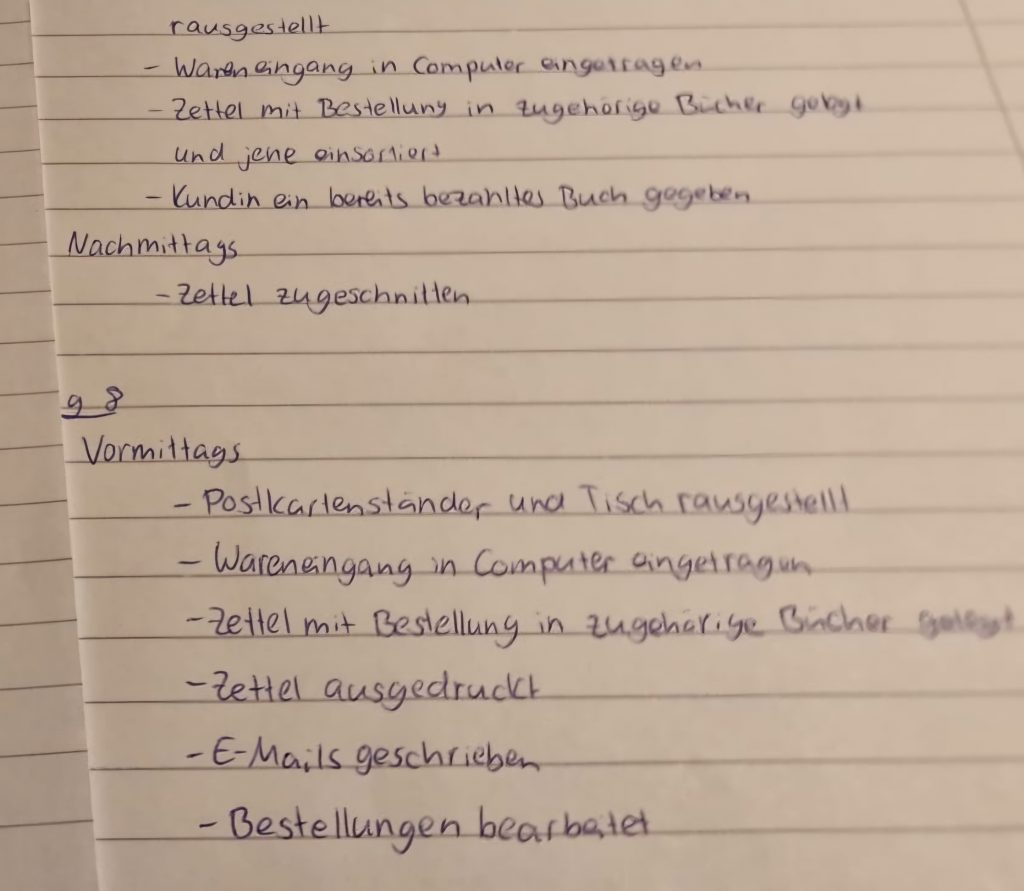 rausgestellt
- Wareneingang in Computer eingetragen
- Zettel mit Bestellung in zugehörige Bücher gelegt
und jene einsortiert
- Kundin ein bereits bezahltes Buch gegeben
Nachmittags
- Zettel zugeschnitten
9 8
Vormittags
- Postkartenständer und Tisch rausgestellt
- Wareneingang in Computer eingetragen
- Zettel mit Bestellung in zugehörige Bücher gelegt
- Zettel ausgedruckt
- E-Mails geschrieben
- Bestellungen bearbeitet